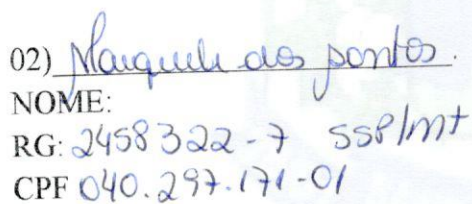 02) Marqueli dos santos.
NOME:
RG: 2458322-7 SSP/mt
CPF 040.297.171-01